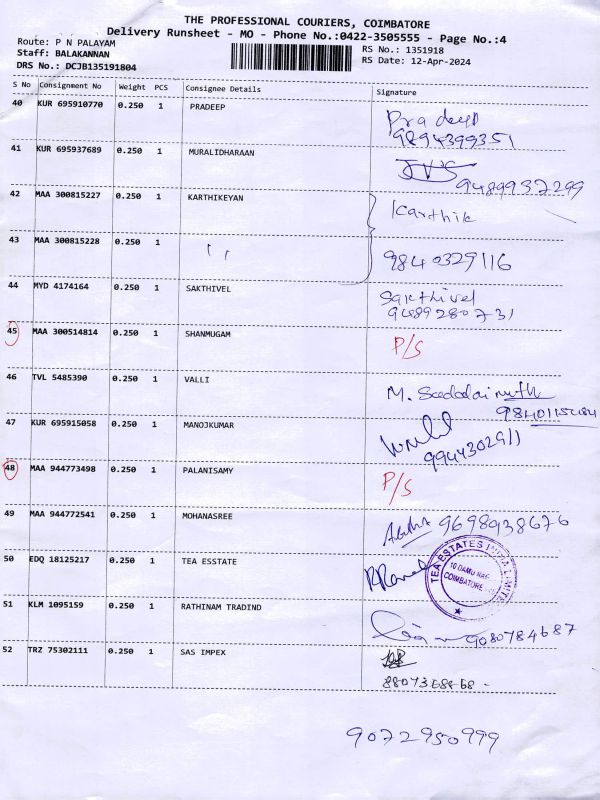 THE PROFESSIONAL COURIERS, COIMBATORE
Delivery Runsheet - MO - Phone No.:0422-3505555 - Page No.:4
Route: P N PALAYAM RS No.: 1351918
Staff: BALAKANNAN RS Date: 12-Apr-2024
DRS No.: DCJB135191804
S No Consignment No Weight PCS Consignee Details Signature
40 KUR 695910770 0.250 1 PRADEEP Pradeep
9894399351
41 KUR 695937689 0.250 1 MURALIDHARAAN
9489937299
42 MAA 300815227 0.250 1 KARTHIKEYAN Karthik
43 MAA 300815228 0.250 1 " 9840329116
44 MYD 4174164 0.250 1 SAKTHIVEL Sakthivel
9489280731
45 MAA 300514814 0.250 1 SHANMUGAM P/S
46 TVL 5485390 0.250 1 VALLI M.
47 KUR 695915058 0.250 1 MANOJKUMAR
9944302911
48 MAA 944773498 0.250 1 PALANISAMY P/S
49 MAA 944772541 0.250 1 MOHANASREE 9698938676
50 EDQ 18125217 0.250 1 TEA ESSTATE
TEA ESTATES INDIA LIMITED
COIMBATORE
51 KLM 1095159 0.250 1 RATHINAM TRADIND 9080784687
52 TRZ 75302111 0.250 1 SAS IMPEX
9072950999